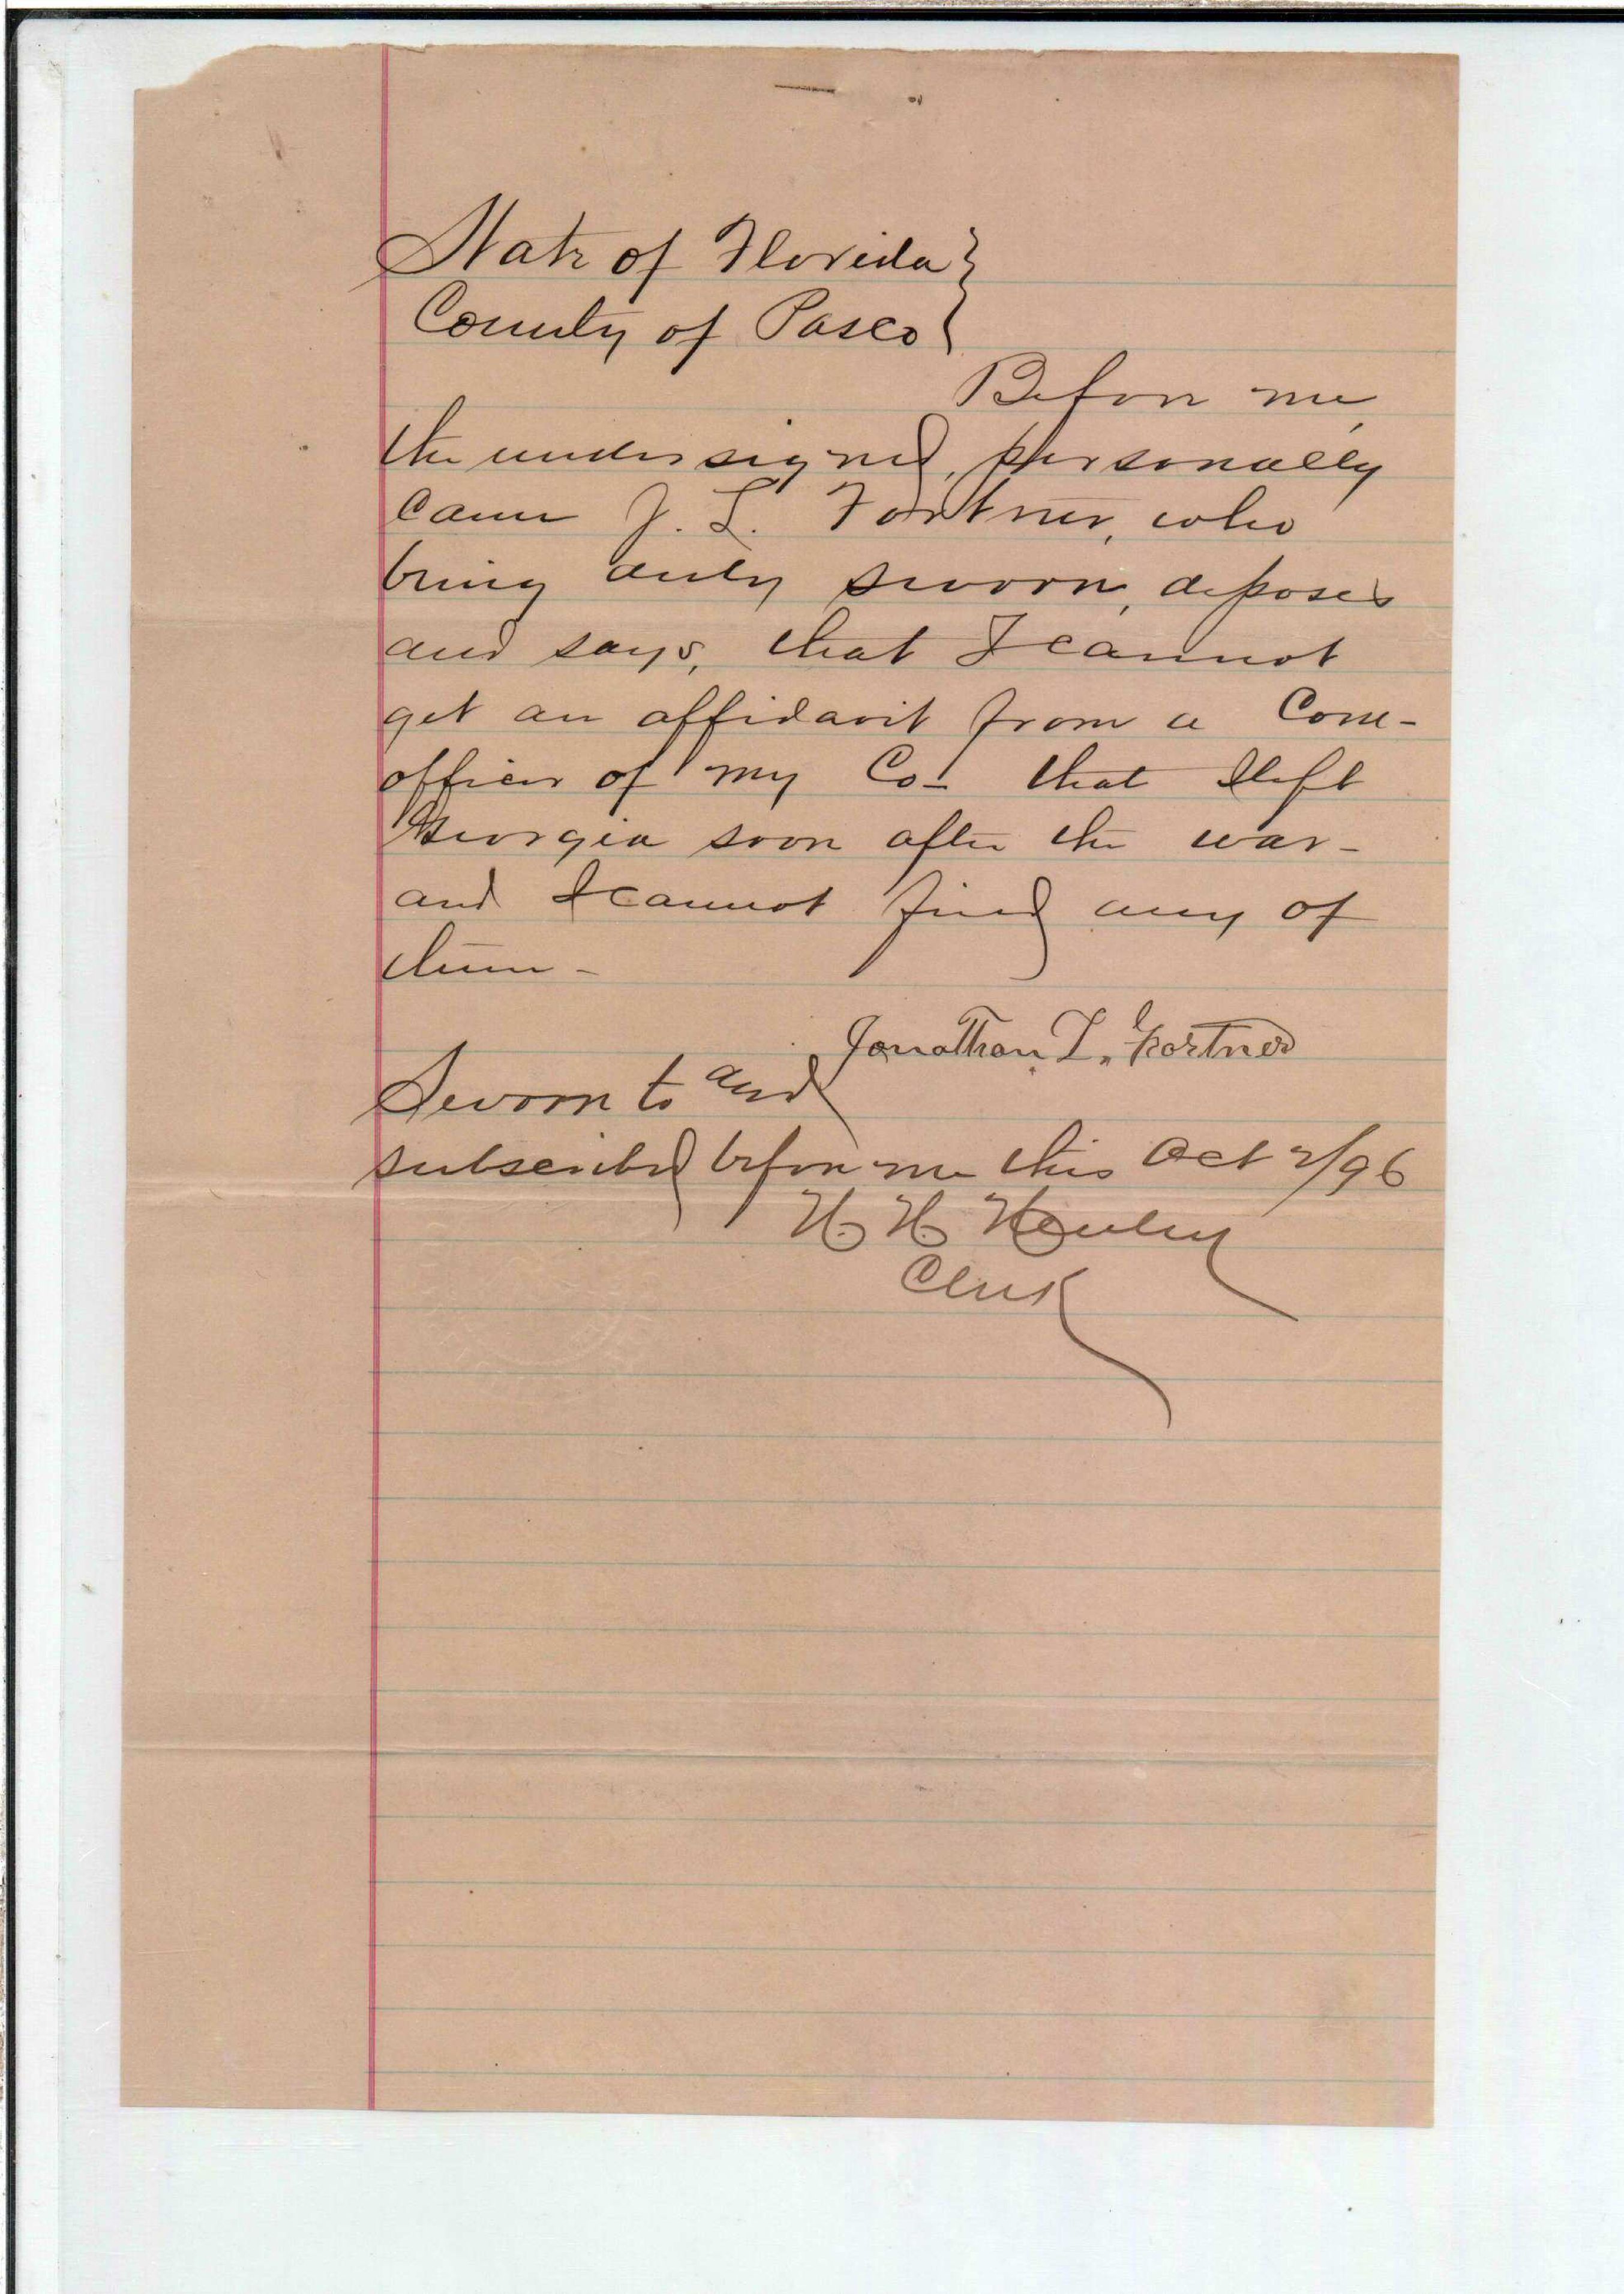 State of Florida }
County of Pasco }
Before me,
the undersigned, personally
came J. L. Fortner, who
being duly sworn, deposes
and says, that I cannot
get an affidavit from a Com-
officer of my Co- that I left
Georgia soon after the war-
and I cannot find any of
them-
Jonathan L. Fortner
Sworn to and
subscribed before me this Oct 2/96
H. H. Henley
Clerk